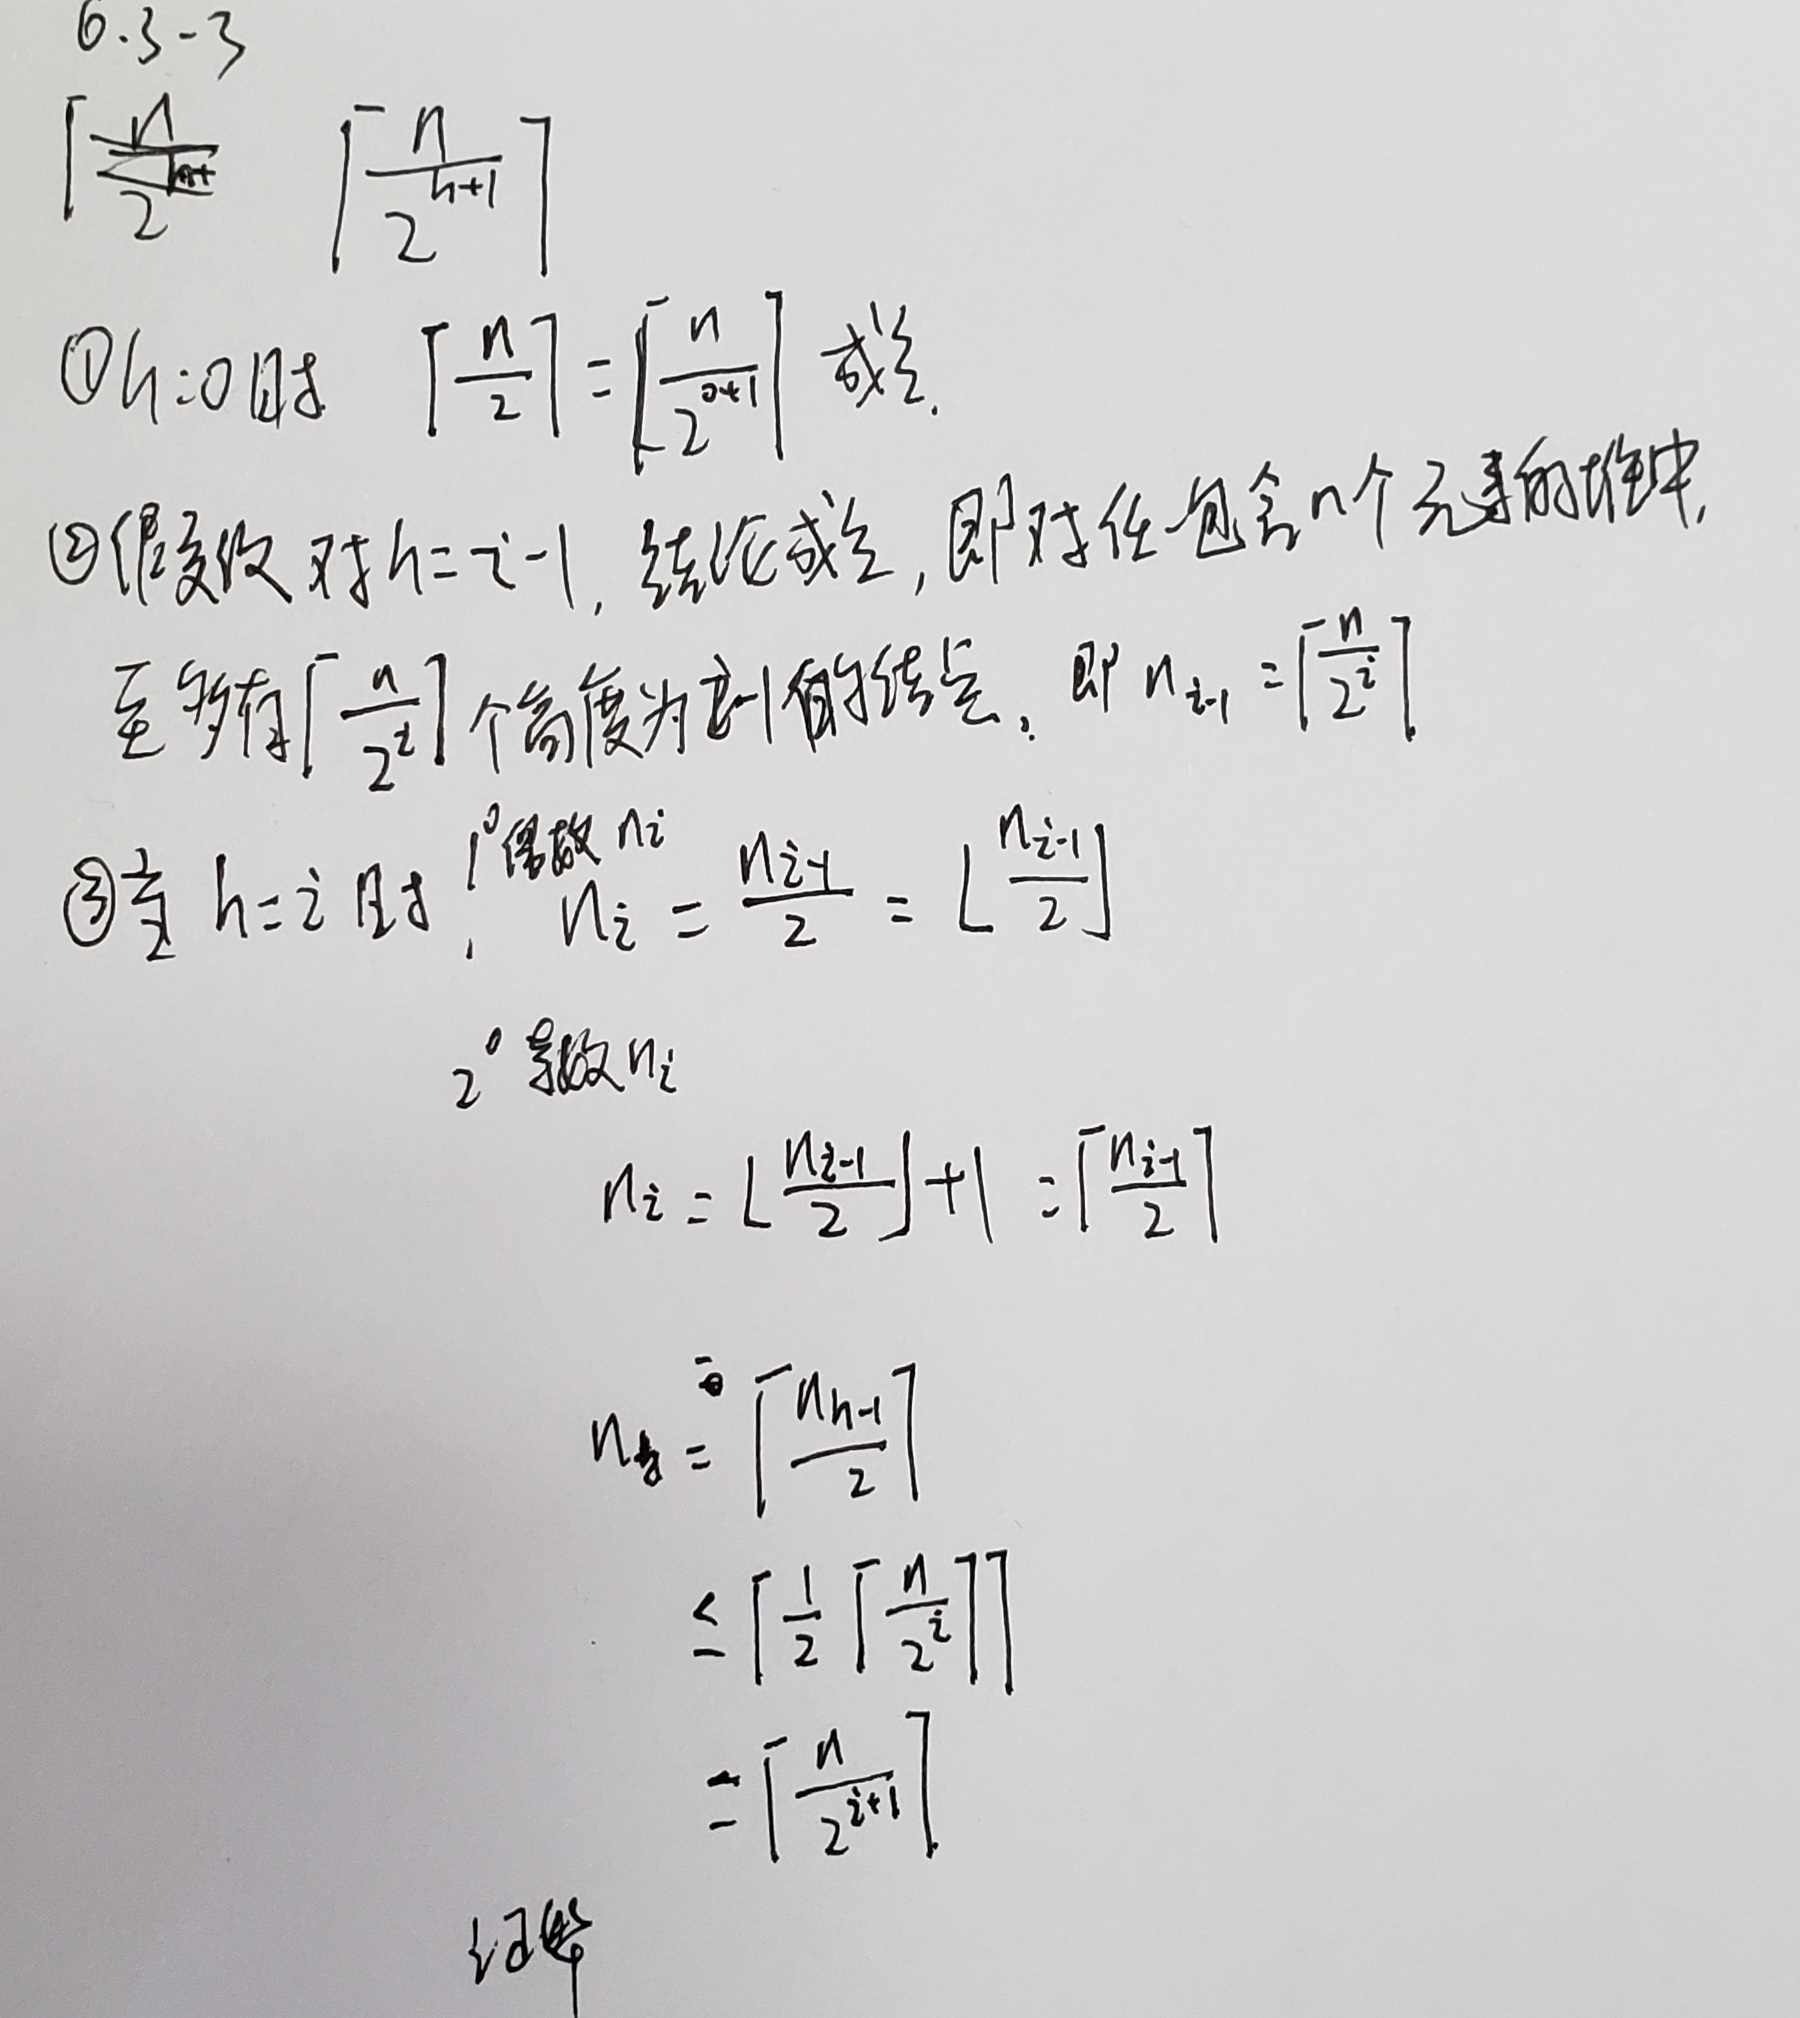 6.3-3
⌈n/2^{h+1}⌉
①h=0时 ⌈n/2⌉=⌈n/2^{0+1}⌉ 成立.
②假设 对h=i-1, 结论成立, 即对任一包含n个元素的堆中,
至多有⌈n/2^i⌉个高度为i-1的结点. 即 n_{i-1}=⌈n/2^i⌉
③当 h=i 时, 1° 偶数 n_i
n_i = n_{i-1}/2 = ⌊n_{i-1}/2⌋
2° 奇数 n_i
n_i = ⌊n_{i-1}/2⌋+1 =⌈n_{i-1}/2⌉
= ⌈n_{h-1}/2⌉
≤ ⌈1/2 ⌈n/2^i⌉⌉
= ⌈n/2^{i+1}⌉
证毕